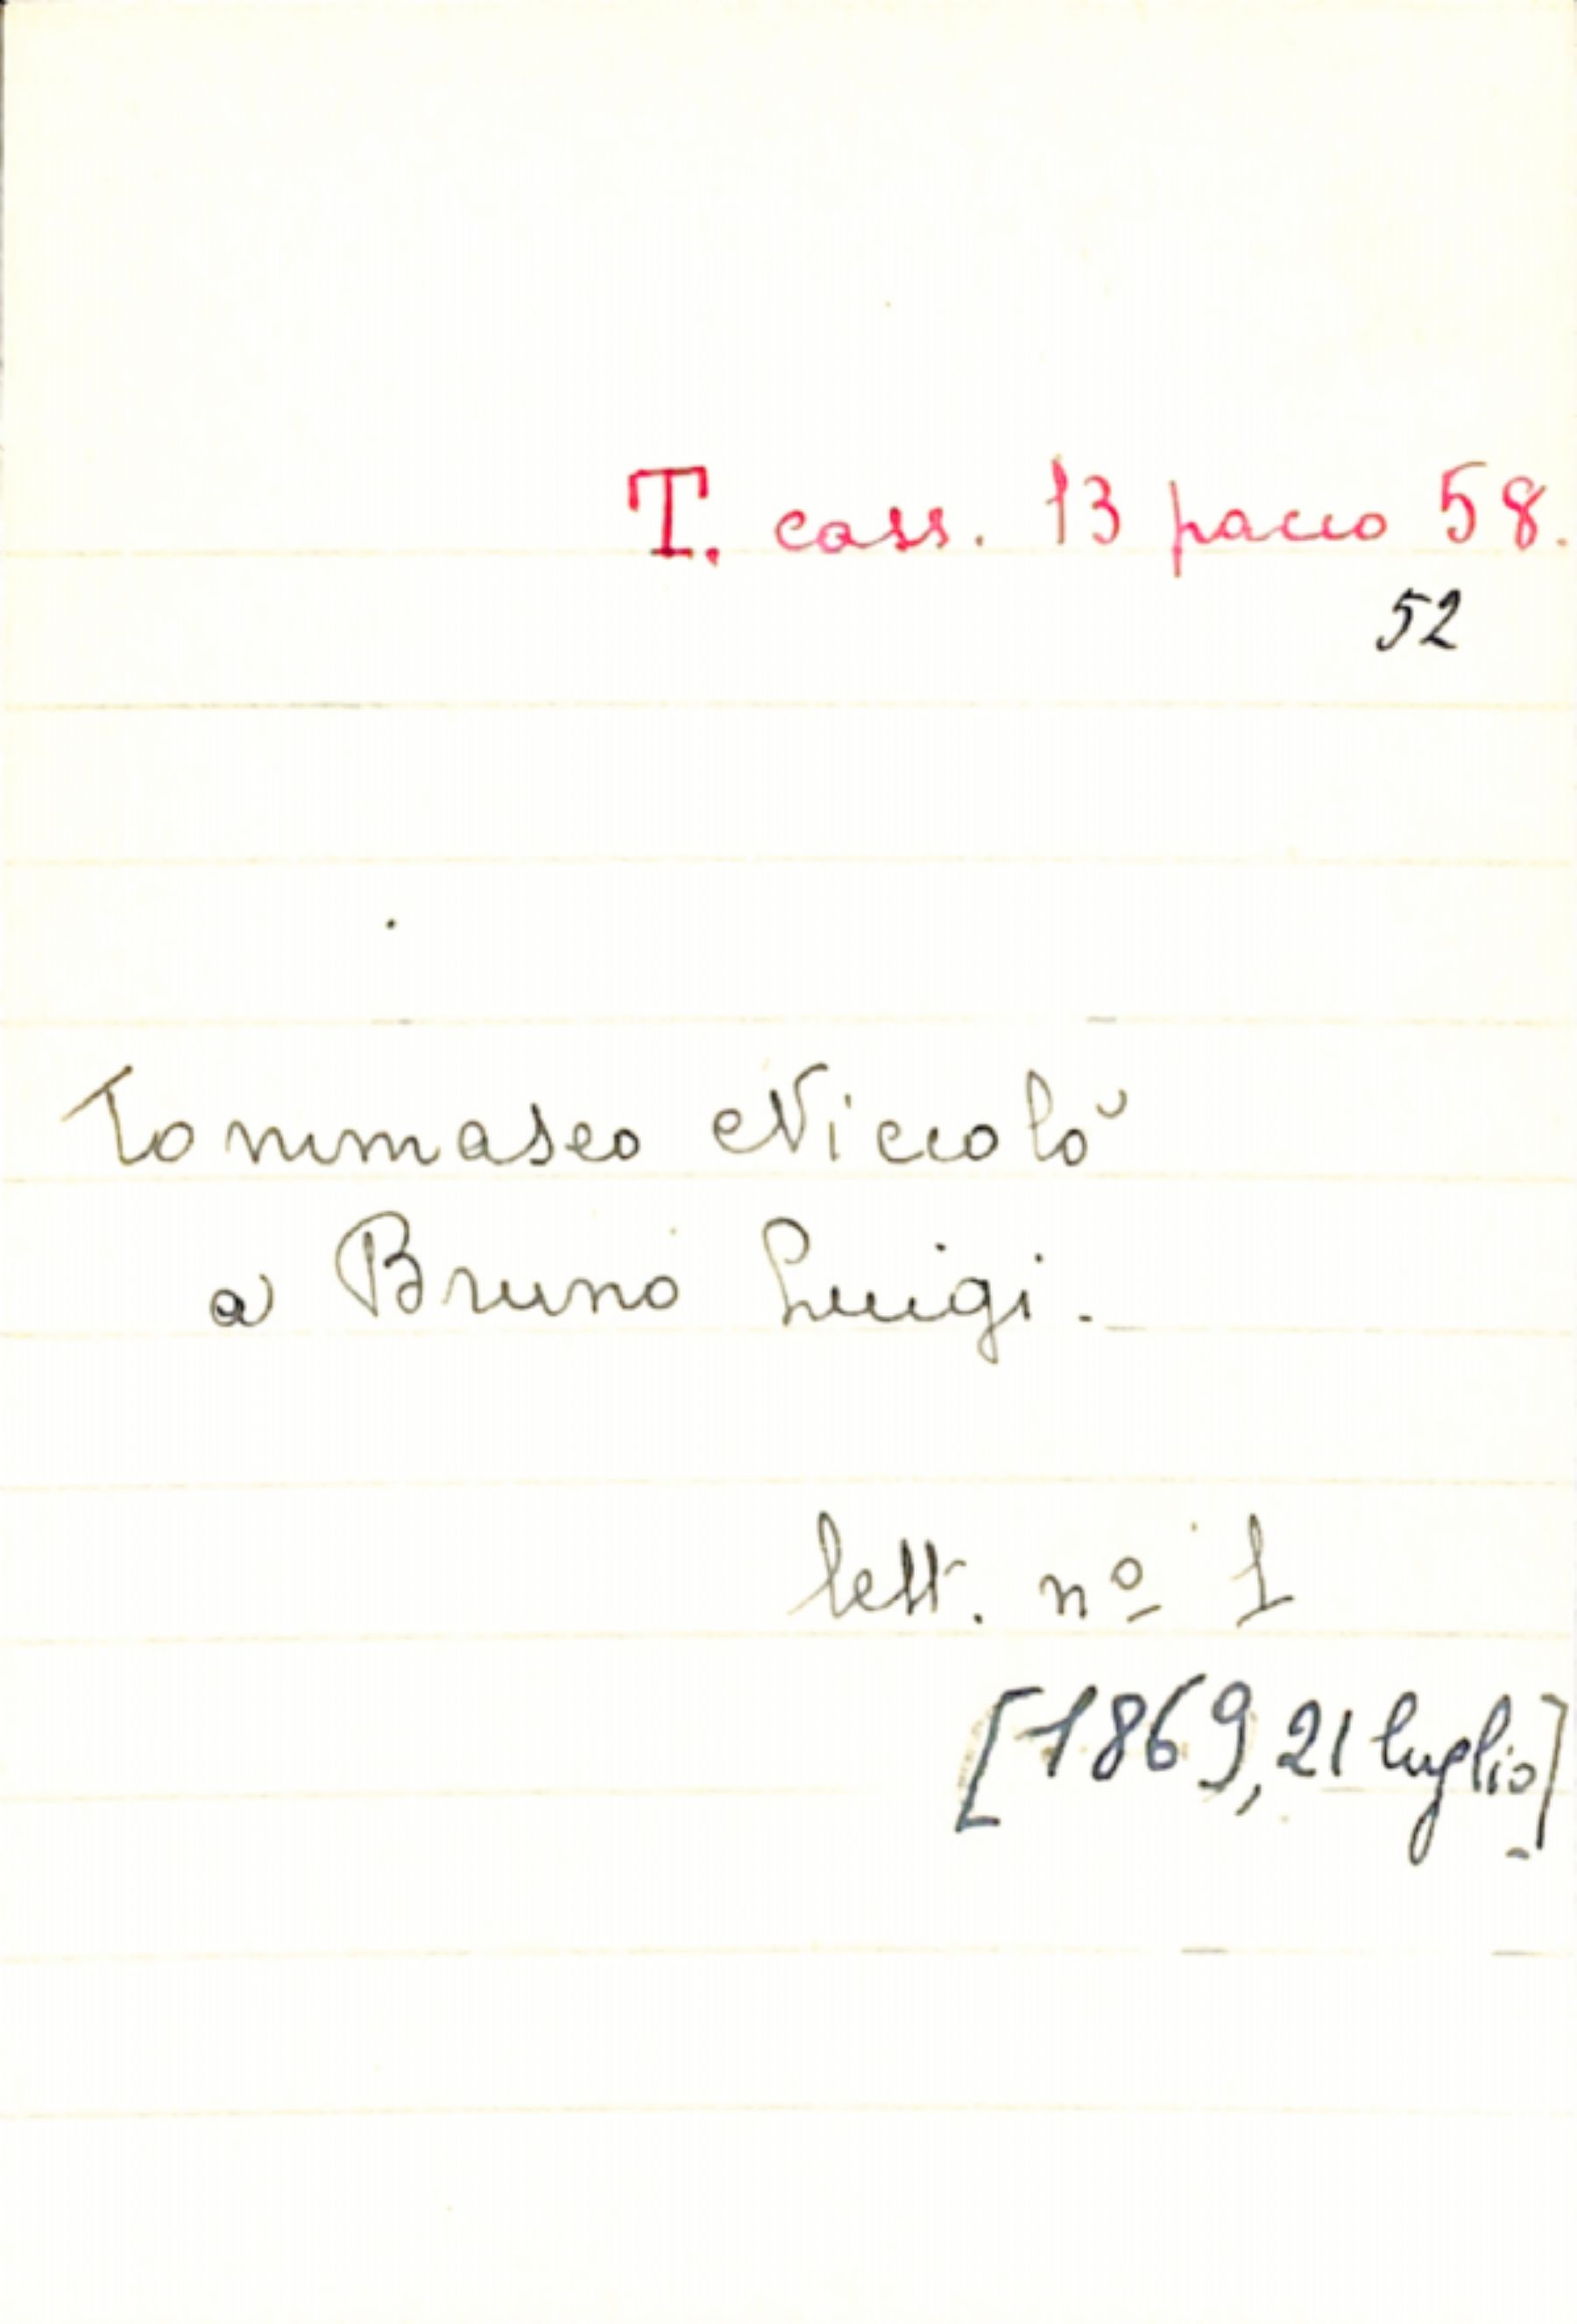 T. cass. 13 pacco 58.
52
Tommaseo Niccolò
a Bruno Luigi.
lett. nº 1
[1869, 21 luglio]